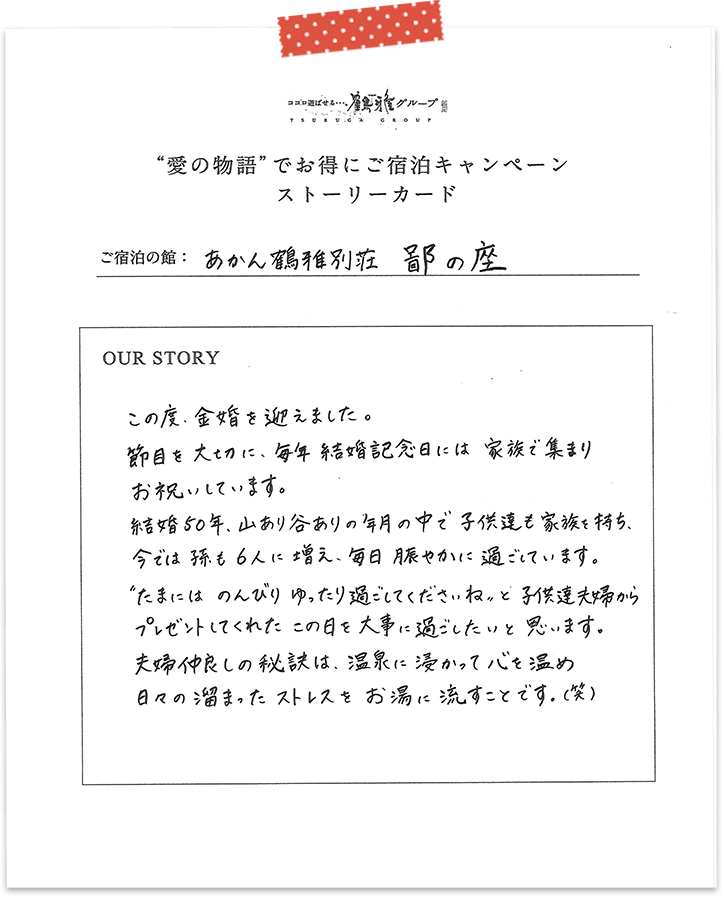 ココロ遊ばせる…。鶴雅グループ
TSURUGA GROUP
“愛の物語”でお得にご宿泊キャンペーン
ストーリーカード
ご宿泊の館： あかん鶴雅別荘 鄙の座
OUR STORY
この度、金婚を迎えました。
節目を大切に、毎年結婚記念日には 家族で集まり
お祝いしています。
結婚50年、山あり谷ありの年月の中で子供達も家族を持ち、
今では孫も6人に増え、毎日賑やかに過ごしています。
〝たまには のんびり ゆったり過ごしてくださいね〟と子供達夫婦から
プレゼントしてくれた この日を大事に過ごしたいと思います。
夫婦仲良しの秘訣は、温泉に浸かって心を温め
日々の溜まったストレスを お湯に流すことです。（笑）